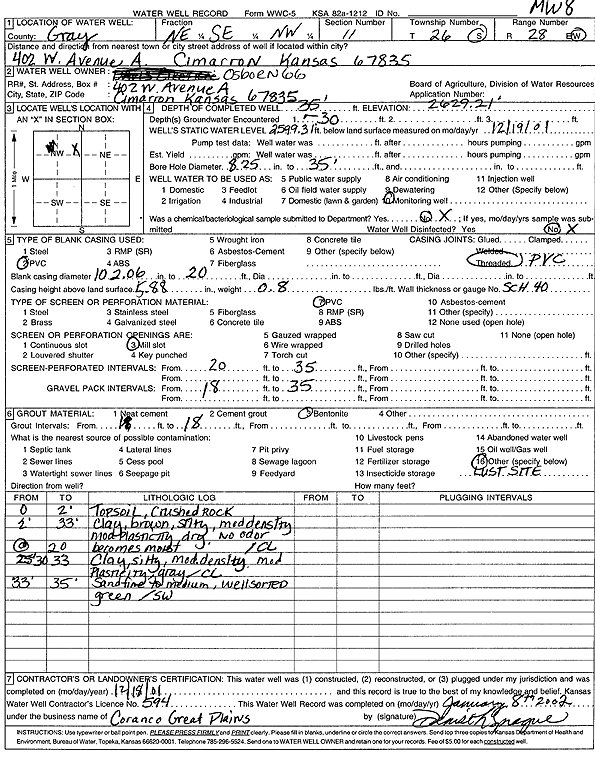 MW8
WATER WELL RECORD Form WWC-5 KSA 82a-1212 ID No.
1 LOCATION OF WATER WELL: Fraction Section Number Township Number Range Number
County: Gray NE ¼ SE ¼ NW ¼ 11 T 26 S R 28 E/W
Distance and direction from nearest town or city street address of well if located within city?
402 W. Avenue A. Cimarron Kansas 67835
2 WATER WELL OWNER: Osborn 66
RR#, St. Address, Box # : 402 W. Avenue A Board of Agriculture, Division of Water Resources
City, State, ZIP Code : Cimarron Kansas 67835 Application Number:
3 LOCATE WELL'S LOCATION WITH AN "X" IN SECTION BOX:
N
NW X NE
W E
SW SE
S
1 Mile
4 DEPTH OF COMPLETED WELL 35' ft. ELEVATION: 2629.21'
Depth(s) Groundwater Encountered 1. 30 ft. 2. ft. 3. ft.
WELL'S STATIC WATER LEVEL 2599.31 ft. below land surface measured on mo/day/yr 12/19/01
Pump test data: Well water was ft. after hours pumping gpm
Est. Yield gpm: Well water was ft. after hours pumping gpm
Bore Hole Diameter 8.25 in. to 35' ft., and in. to ft.
WELL WATER TO BE USED AS: 5 Public water supply 8 Air conditioning 11 Injection well
1 Domestic 3 Feedlot 6 Oil field water supply 9 Dewatering 12 Other (Specify below)
2 Irrigation 4 Industrial 7 Domestic (lawn & garden) 10 Monitoring well
Was a chemical/bacteriological sample submitted to Department? Yes No X; If yes, mo/day/yrs sample was submitted
Water Well Disinfected? Yes No X
5 TYPE OF BLANK CASING USED: 5 Wrought iron 8 Concrete tile CASING JOINTS: Glued Clamped
1 Steel 3 RMP (SR) 6 Asbestos-Cement 9 Other (specify below) Welded
2 PVC 4 ABS 7 Fiberglass Threaded PVC
Blank casing diameter 10 2.06 in. to 20 ft., Dia in. to ft., Dia in. to ft.
Casing height above land surface .88 in., weight 0.8 lbs./ft. Wall thickness or gauge No. SCH. 40
TYPE OF SCREEN OR PERFORATION MATERIAL: 7 PVC 10 Asbestos-cement
1 Steel 3 Stainless steel 5 Fiberglass 8 RMP (SR) 11 Other (specify)
2 Brass 4 Galvanized steel 6 Concrete tile 9 ABS 12 None used (open hole)
SCREEN OR PERFORATION OPENINGS ARE: 5 Gauzed wrapped 8 Saw cut 11 None (open hole)
1 Continuous slot 3 Mill slot 6 Wire wrapped 9 Drilled holes
2 Louvered shutter 4 Key punched 7 Torch cut 10 Other (specify) ft.
SCREEN-PERFORATED INTERVALS: From 20 ft. to 35 ft., From ft. to ft.
From ft. to ft., From ft. to ft.
GRAVEL PACK INTERVALS: From 18 ft. to 35 ft., From ft. to ft.
From ft. to ft., From ft. to ft.
6 GROUT MATERIAL: 1 Neat cement 2 Cement grout 3 Bentonite 4 Other
Grout Intervals: From ft. to 18 ft., From ft. to ft., From ft. to ft.
What is the nearest source of possible contamination: 10 Livestock pens 14 Abandoned water well
1 Septic tank 4 Lateral lines 7 Pit privy 11 Fuel storage 15 Oil well/Gas well
2 Sewer lines 5 Cess pool 8 Sewage lagoon 12 Fertilizer storage 16 Other (specify below)
3 Watertight sewer lines 6 Seepage pit 9 Feedyard 13 Insecticide storage LUST SITE
Direction from well? How many feet?
FROM TO LITHOLOGIC LOG FROM TO PLUGGING INTERVALS
0 2' Topsoil, Crushed Rock
2' 33' Clay, brown, silty, mod density
mod plasticity dry No odor
20 becomes moist /CL
30 33 Clay, silty, mod density, mod
Plasticity, gray /CL
33' 35' Sand fine to medium, wellsorted
green /SW
7 CONTRACTOR'S OR LANDOWNER'S CERTIFICATION: This water well was (1) constructed, (2) reconstructed, or (3) plugged under my jurisdiction and was
completed on (mo/day/year) 12/18/01 and this record is true to the best of my knowledge and belief. Kansas
Water Well Contractor's Licence No. 594 This Water Well Record was completed on (mo/day/yr) January 8th 2002
under the business name of Coranco Great Plains by (signature)
INSTRUCTIONS: Use typewriter or ball point pen. PLEASE PRESS FIRMLY and PRINT clearly. Please fill in blanks, underline or circle the correct answers. Send top three copies to Kansas Department of Health and
Environment, Bureau of Water, Topeka, Kansas 66620-0001. Telephone 785-296-5524. Send one to WATER WELL OWNER and retain one for your records. Fee of $5.00 for each constructed well.